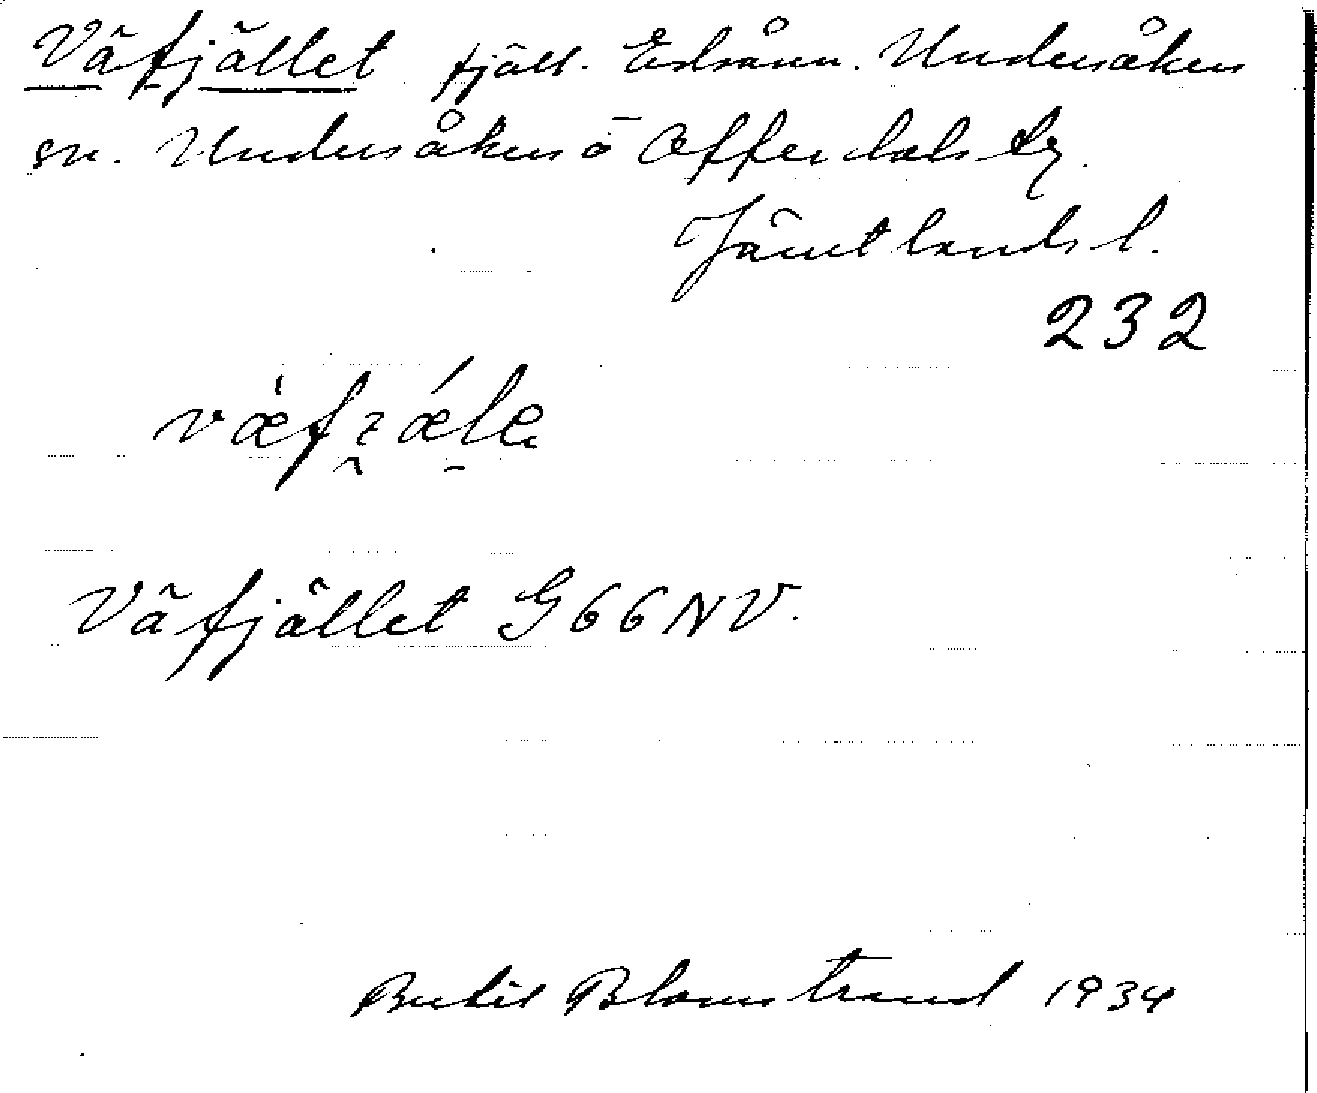 Väfjället fjäll. Edsåsen. Undersåkers
sn. Undersåkers o Offerdals tg.
Jämtlands l.
232
Väfjället G66NV.
Bertil Blomstrand 1934